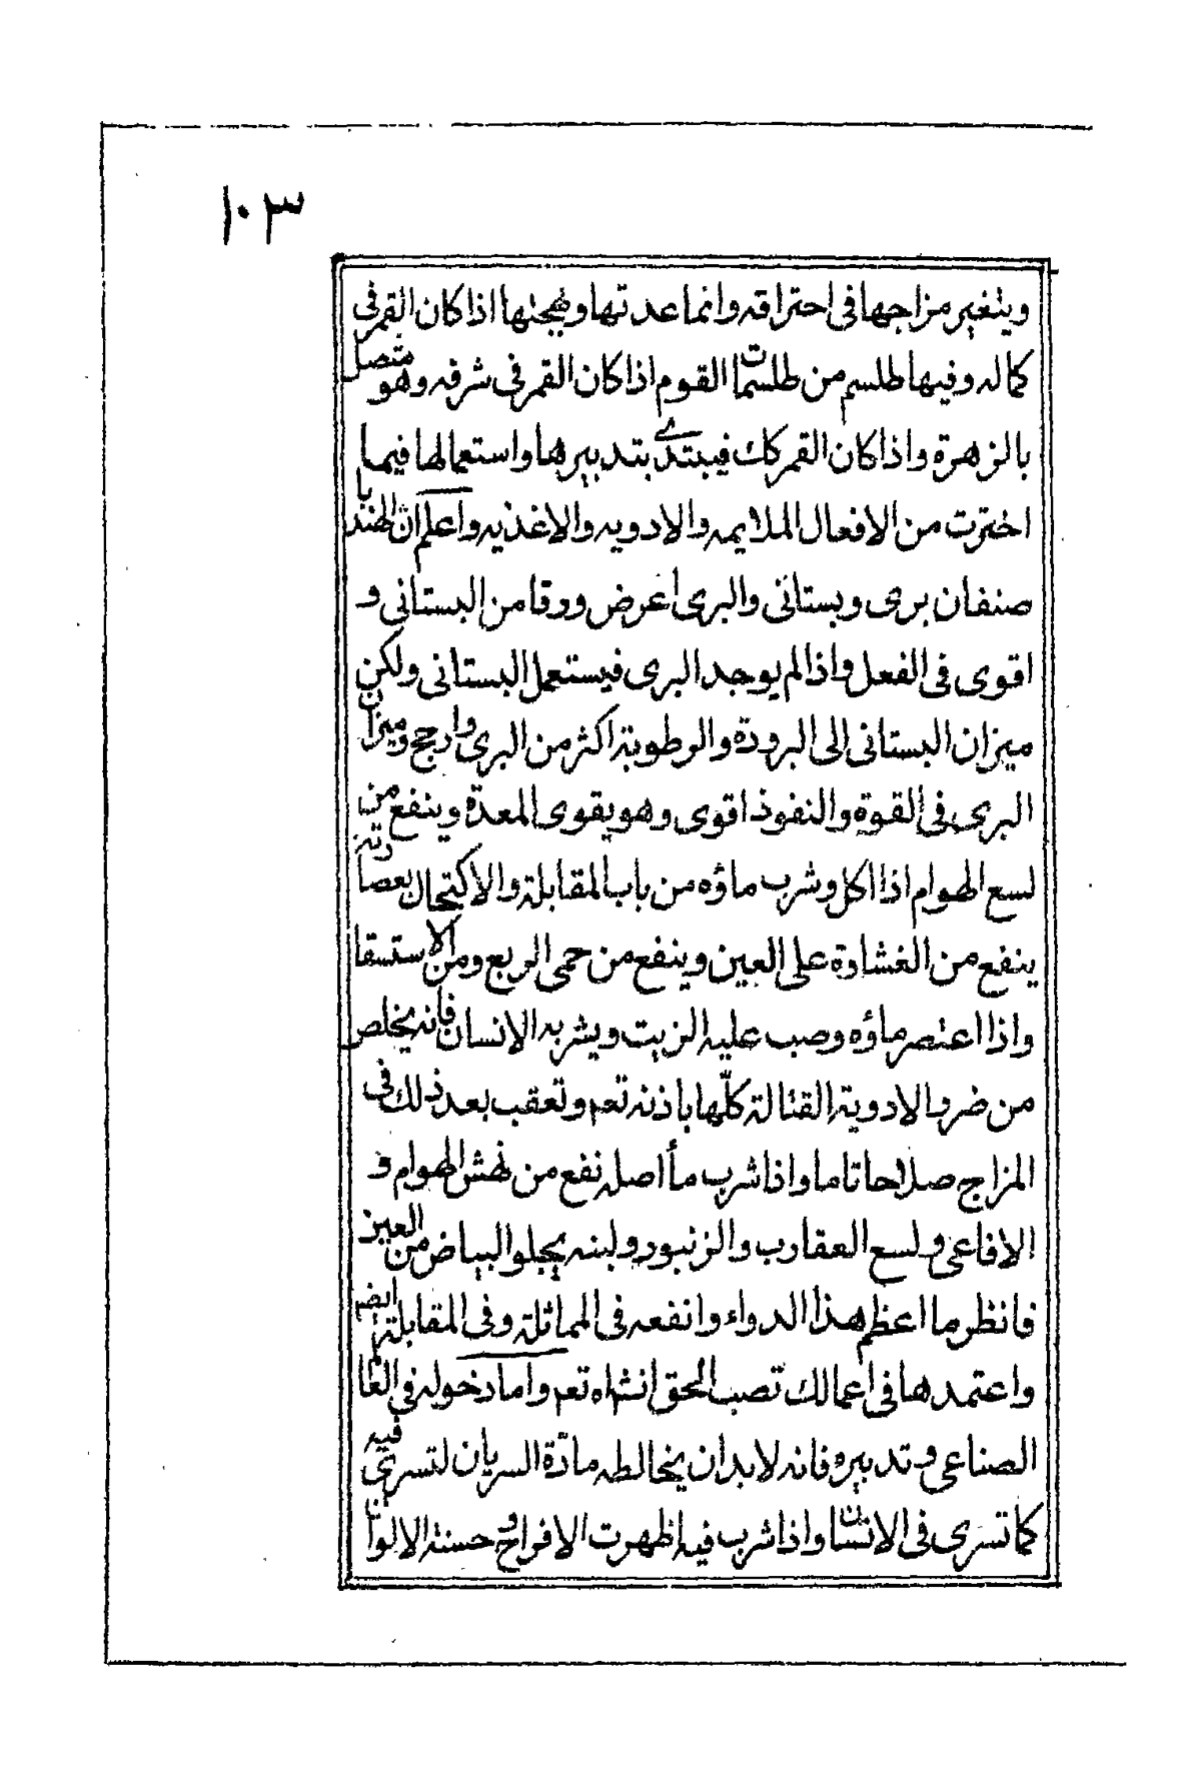 ١٠٣
ويتغير مزاجها فى احتراقه وانما عدتها وبهجتها اذا كان القمر فى
كماله وفيها طلسم من طلسمات القوم اذا كان القمر فى شرفه وهو متصل
بالزهرة واذا كان القمر كك فيبتدئ بتدبيرها واستعمالها فيما
اخترت من الافعال الملايمه والادويه والاغذيه واعلم ان الهندبا
صنفان برى وبستانى والبرى اعرض ورقا من البستانى و
اقوى فى الفعل واذا لم يوجد البرى فيستعمل البستانى ولكن
ميزان البستانى الى البرودة والرطوبة اكثر من البرى وارجح وميزان
البرى فى القوة والنفوذ اقوى وهو يقوى المعدة وينفع من
لسع الهوام اذا اكل وشرب ماؤه من باب المقابلة والاكتحال بعصارته
ينفع من الغشاوة على العين وينفع من حمى الربع ومن الاستسقا
واذا اعتصر ماؤه وصب عليه الزيت ويشربه الانسان فانه يخلص
من ضرر الادوية القتالة كلّها باذنه تعم وتعقب بعد ذلك فى
المزاج صلاحا تاما واذا شرب مأ اصله نفع من نهش الهوام و
الافاعى ولسع العقارب والزنبور ولبنه يجلو البياض من العين
فانظر ما اعظم هذا الدواء وانفعه فى المماثلة وفى المقابلة ايضم
واعتمدها فى اعمالك تصب الحق انشاه تعم واما دخوله فى العالم
الصناعى وتدبيره فانه لابد ان يخالطه مادّة السريان لتسرى فيه
كما تسرى فى الانسان واذا شرب فيه اظهرت الافراح و حسنة الالوان